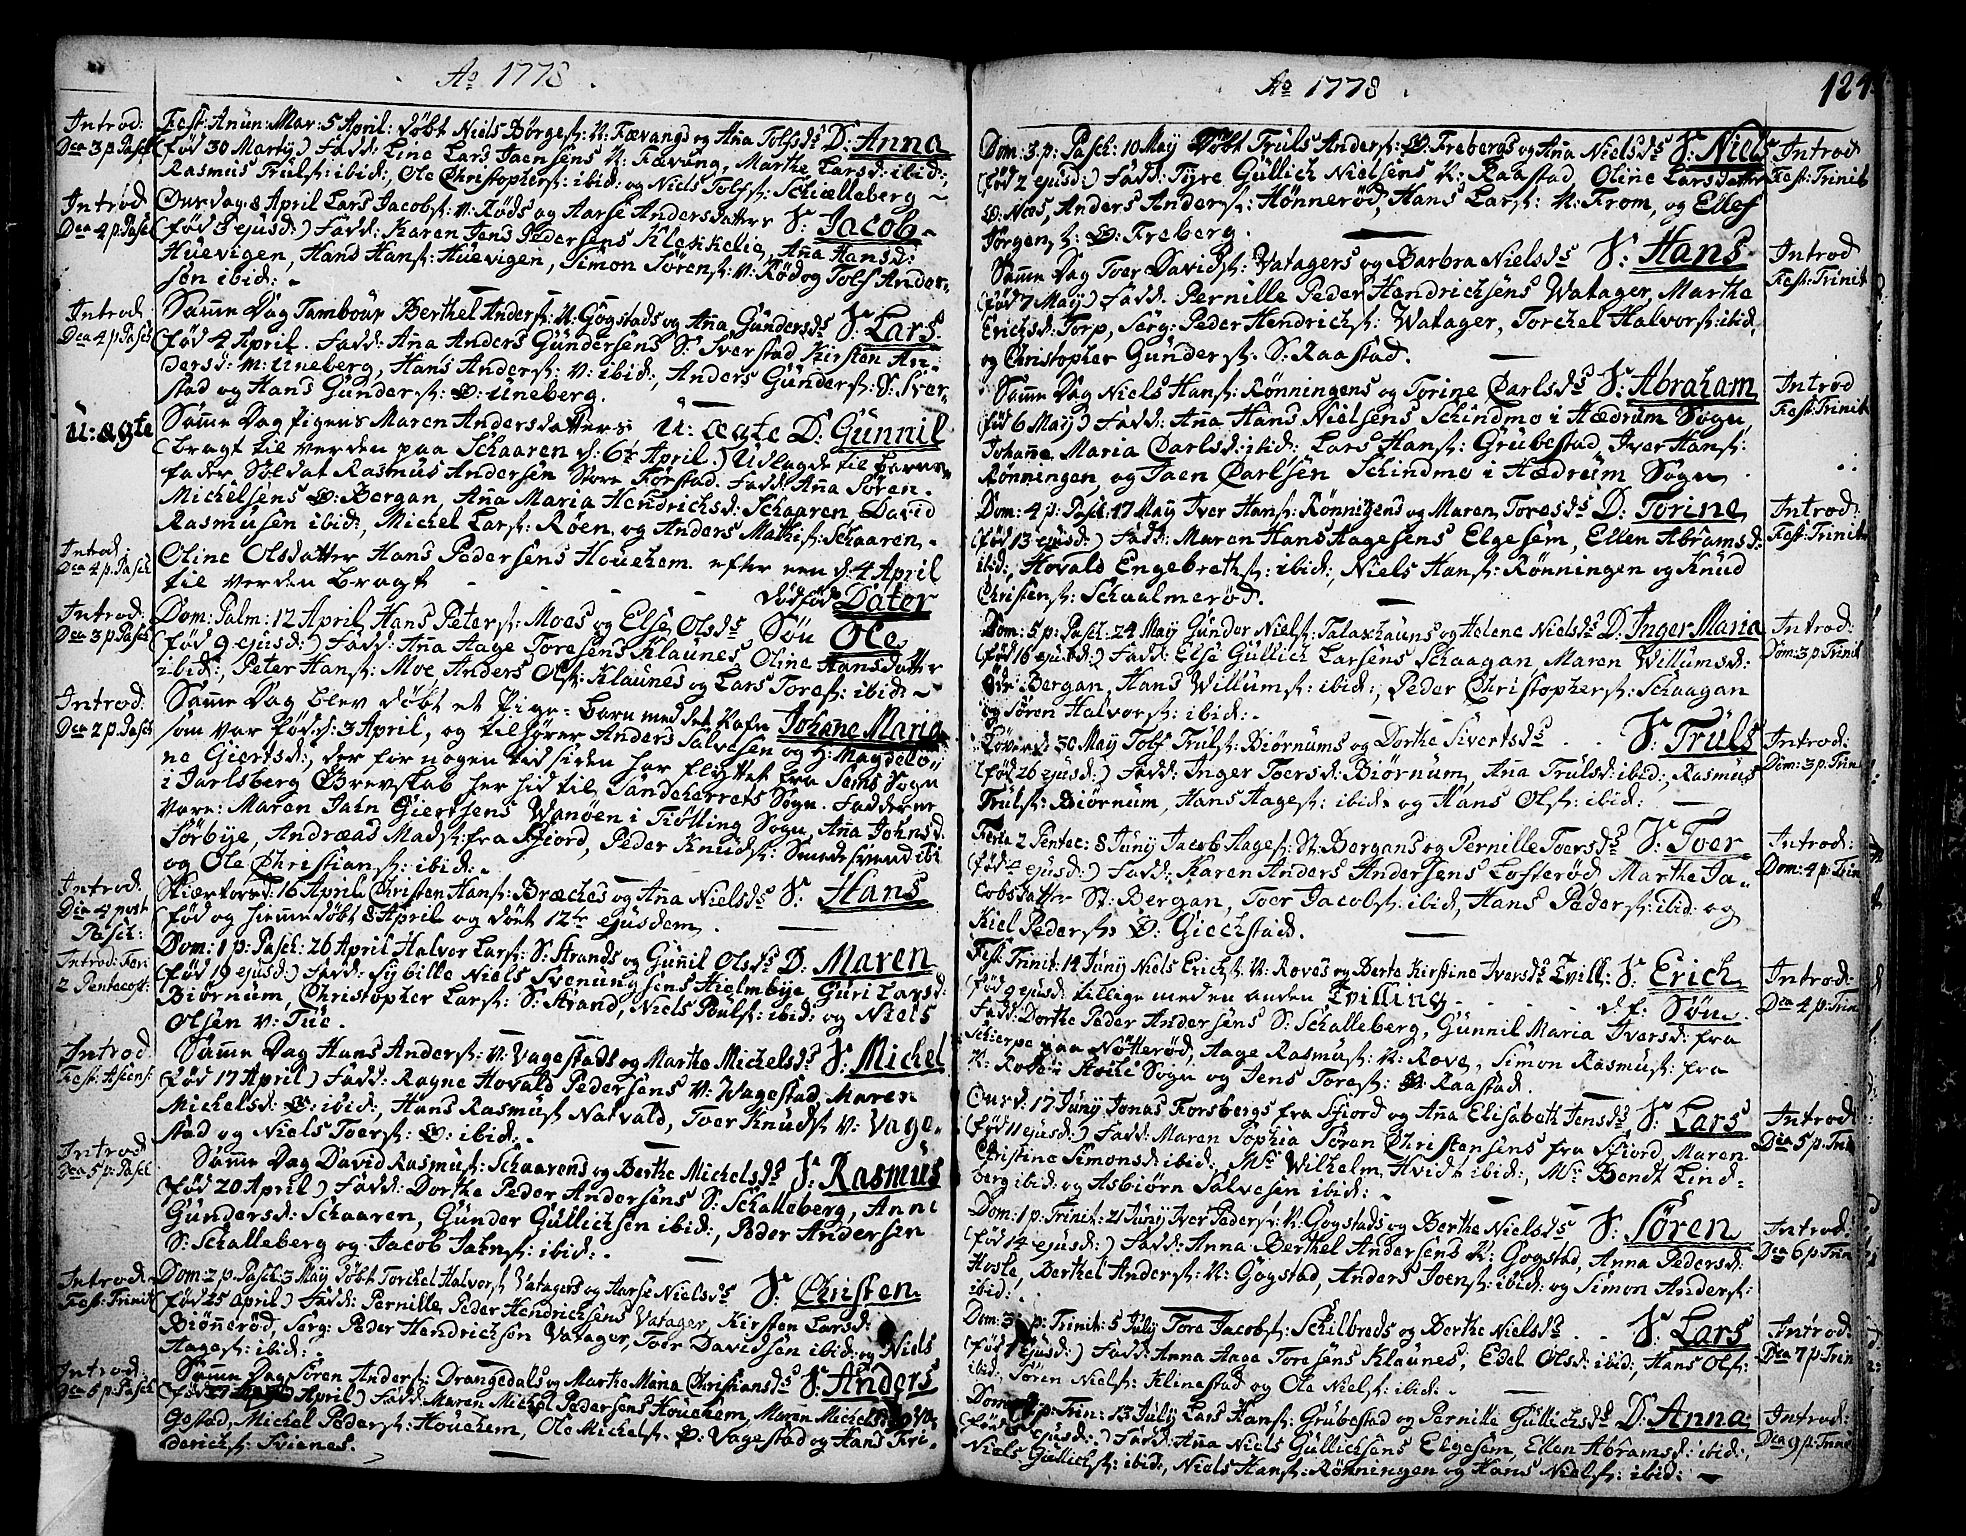 Ao 1778.
Introd:
Dca 3 p: Pasch
Fest: Anun: Mar: 5 April: Døbt Niels Børges: N: Fævangs og Aña Tolfsds D: Anna
(fød 30 Marty) Fadd: Line Lars Jaensens N: Fævang, Marthe Larsd: ibid:,
Rasmus Truls: ibid:, Ole Christophers: ibid: og Niels Tolfs: Schielleberg
Introd
Dca 4 p: Pasc
Onsdag: 8 April Lars Jacobs: N: Røds og Aarse Andersdatter S: Jacob
(fød 3 ejusd:) Fadd: Karen Jens Pedersens Klekkelie, Aña Hansd:
Huevigen, Hans Hans: Huevigen, Simon Sørens: N: Rød og Tolf Ander-
sen ibid:
Introd:
Dca 4 p: Pasc
Same Dag Tambour Berthel Anders: N: Gogstads og Aña Gundersds S: Lars
(fød 4 April. Fadd: Ana Anders Gundersens S: Iverstad, Kirsten An-
dersd: M: Uneberg, Hans Anders: N: ibid:, Anders Gunders: S: Iver-
stad og Hans Gunders: Ø: Uneberg.
U: ægte
Same Dag pigens Maren Andersdatters U: ægte D: Gunnil
(bragt til verden paa Schaaren d: 6te April.) Udlagde til barne-
fader Soldat Rasmus Andersen Store Førstad. Fadd: Aña Søren
Michelsens Ø: Bergan, Aña Maria Hendrichsd: Schaaren, David
Rasmusen ibid:, Michel Lars: Røen, og Anders Mathis: Schaaren.
Introd
Dca 4 p: Pasch
Oline Olsdatter Hans Pedersens Houehem. efter een d: 4 April
til verden bragt dødfød Dater
Introd:
Dca 3 p: Pasch
Dom: Palm: 12 April, Hans Peters: Moes og Else Olsds Søn Ole
(fød 9 ejusd:) Fadd: Aña Aage Toresens Klaunes, Oline Hansdatter
ibid:, Peter Hans: Moe, Anders Ols: Klaunes og Lars Tores: ibid:
Introd:
Dca 2 p: Pasch
Same Dag blev døbt et Pige-barn med det Nafn Johane Maria
som var fød d: 3 April, og tilhører Anders Salvesen og H: Magdele-
ne Giertsd:, der for nogen tid siden har flyttet fra Sems Sogn
i Jarlsberg Grevskab her hid til Sandeherrets Sogn. Fadderne
vare: Maren Jahn Giertsens Wanøen i Tiølling Sogn, Aña Johnsd:
Sørbye, Andræas Mads: fra Fiord, Peder Knuds: Smedesvend ibi
og Ole Christians: ibid:
Introd:
Die 4 post
Pasch:
Skiærtorsd: 16 April Christen Hans: Bræches og Aña Nielsds S: Hans
fød og hiemedøbt 8 April og døet 12te ejusdem.
Introd: Feri
2 Pentecost:
Dom: 1 p: Pasch: 26 April Halvor Lars: S: Strands og Gunnil Olsds D: Maren
(fød 19 ejusd:) Fadd: Sybille Niels Svenungsens Hielmbye, Guri Larsd:
Biørnum, Christopher Lars: S: Strand, Niels Pouls: ibid: og Niels
Olsen v: Tue.
Introd
Fest: Ascens:
Same Dag Hans Anders: N: Vagestads og Marthe Michelsds S: Michel
(fød 17 April) Fadd: Ragne Hovald Pedersens N: Wagestad, Maren
Michelsd: Ø: ibid:, Hans Rasmus: Natvald, Tver Knuds: N: Vage-
stad og Niels Toers: Ø: ibid:
Introd
Dca 5 p: Pasc
Same Dag David Rasmus: Schaarens og Berthe Michelsds S: Rasmus
(fød 20 April) Fadd: Dorthe Peder Andersens S: Schalleberg, Anne
Gundersd: Schaaren, Gunder Gullichsen ibid:, Peder Andersen
S: Schalleberg og Jacob Jahns: ibid:
Introd
Fest: Trinit
Dom: 2 p: Pasch: 3 May Døbt Torchel Halvors: Vatagers og Aarse Nielsds S: Christen
(fød 25 April) Fadd: Pernille, Peder Hendrichsens Vatager, Kirsten Larsd:
Biønnerød, Serg: Peder Hendrichsen Vatager, Toer Davidsen ibid: og Niels
Aages: ibid:
Introd:
Dca 5 p: Pasch
Same Dag Søren Anders: Orangedals og Marthe Maria Christiansds S: Anders
(fød 27 April) Fadd: Maren Michel Pedersens Houehem, Maren Michelsd: Ø: Va-
gestad, Michel Peders: Houehem, Ole Michels: Ø: Vagestad og Hans Fri-
derichs: Svienes.
Ao 1778.
124
Dom: 3 p: Pasch: 10 May Døbt Truls Anders: Ø: Frebergs og Aña Nielsds S: Niels
(fød 2 ejusd:) Fadd: Tyre Gullich Nielsens N: Raastad, Oline Larsdatter
Ø: Næs, Anders Anders: Hønnerød, Hans Lars: N: From, og Ellef
Jørgen: Ø: Freberg.
Introd
Fest: Trinit
Same Dag Toer Davids: Vatagers og Barbra Nielsds S: Hans
(fød 7 May) Fadd: Pernille Peder Hendrichsens Watager, Marthe
Erichsd: Torp, Serg: Peder Hendrichs: Watager, Torchel Halvors: ibid:
og Christopher Gunders: S: Raastad.
Introd
Fest: Trinit
Same Dag Niels Hans: Rønningens og Torine Carlsds S: Abraham
(fød 6 May) Fadd: Aña Hans Nielsens Schindmo i Hædrum Sogn,
Johañe Maria Carlsd: ibid: Lars Hans: Grubestad, Iver Hans:
Rønningen, og Jaen Carlsen Schindmo i Hædrum Sogn.
Introd
Fest: Trinit
Dom: 4 p: Pasch: 17 May Iver Hans: Rønningens og Maren Toresds D: Torine
(fød 13 ejusd:) Fadd: Maren Hans Aagesens Elgesem, Ellen Abramsd:
ibid:, Hovald Engebreths: ibid:, Niels Hans: Rønningen og Knud
Christens: Schaalmerød.
Introd:
Fest: Trinit
Dom: 5 p: Pasch: 24 May Gunder Niels: Talaxhauns og Helene Nielsds D: Inger Maria
(fød 16 ejusd:) Fadd: Else Gullich Larsens Schaagan, Maren Willumsd:
Bergan, Hans Willums: ibid:, Peder Christophers: Schaagan
og Søren Halvors: ibid:
Introd:
Dom: 3 p: Trinit
Løverd: 30 May Tolf Truls: Biørnums og Dorthe Sivertsds S: Truls
(fød 26 ejusd:) Fadd: Inger Toersd: Biørnum, Aña Trulsd: ibid:, Rasmus
Truls: Biørnum, Hans Aages: ibid: og Hans Ols: ibid:
Introd:
Dom: 3 p: Trin
Feria 2 Pentec: 8 Juny Jacob Aages: St: Bergans og Pernille Toersds S: Toer
(fød ejusd:) Fadd: Karen Anders Andersens Lofterød, Marthe Ja-
cobsdatter St: Bergan, Toer Jacobs: ibid, Hans Peders: ibid: og
Kiel Peders: Ø: Giechstad.
Introd:
Dom: 4 p: Trin
Fest: Trinit: 14 Juny Niels Erichs: N: Roves og Berte Kirstine Iversds Tvill: S: Erich
(fød 9 ejusd: tillige med en anden Tvilling d: f: Søn
Fadd: Dorthe Peder Andersens S: Schalleberg, Gunnil Maria Iversd: fra
Schierpe paa Nøtterød, Aage Rasmus: N: Rove, Simon Rasmus: fra
N: Rove i Sogn og Jens Tores: Raastad.
Introd:
Dca 4 p: Trin
Onsd: 17 Juny Jonas Forsbergs fra Fiord og Aña Elisabeth Jensds S: Lars
(fød 11 ejusd:) Fadd: Maren Sophia Søren Christensens fra Fiord, Maren
Christine Simonsd: ibid:, Mr Wilhelm Hvidt ibid:, Mr Bendt Lind-
berg ibid: og Asbiørn Salvesen ibid:
Introd:
Dca 5 p: Trin
Dom: 1 p: Trinit: 21 Juny Iver Peders: N: Gogstads og Berthe Nielsds S: Søren
(fød 14 ejusd:) Fadd: Anna Berthel Andersens N: Gogstad, Anna Pedersd:
Hosle, Berthel Anders: N: Gogstad, Anders Ivens: ibid: og Simon Anders:
ibid:
Introd:
Dca 6 p: Trin
Dom: 3 p: Trinit: 5 July Tore Jacobs: Schilbreds og Berthe Nielsds S: Lars
(fød 1 ejusd:) Fadd: Anna Aage Toresens Klaunes, Edel Olsd: ibid:, Hans Ols:
ibid: Søren Niels: Klinestad og Ole Niels: ibid:
Introd:
Dca 7 p: Trin
Dom: 4 p: Trin: 13 July Lars Hans: Grubestad og Pernille Gullichsds D: Anna
(fød ejusd:) Fadd: Aña Niels Gullichsens Elgesem, Ellen Abramsd: ibid:,
Niels Gullichs: ibid:, Niels Hans: Rønningen og Hans Niels: ibid:
Introd:
Dca 9 p: Trin